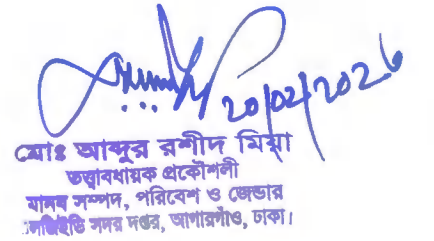 20/02/2026
মোঃ আব্দুর রশীদ মিয়া
তত্ত্বাবধায়ক প্রকৌশলী
মানব সম্পদ, পরিবেশ ও জেন্ডার
এলজিইডি সদর দপ্তর, আগারগাঁও, ঢাকা।